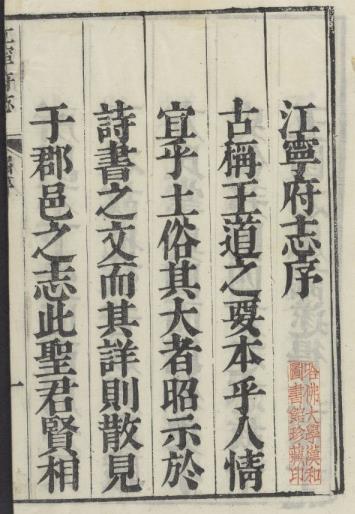 江寧府志序
古稱王道之要本乎人情
宜乎土俗其大者昭示於
詩書之文而其詳則散見
于郡邑之志此聖君賢相
一
哈佛大學漢和
圖書館珍藏印